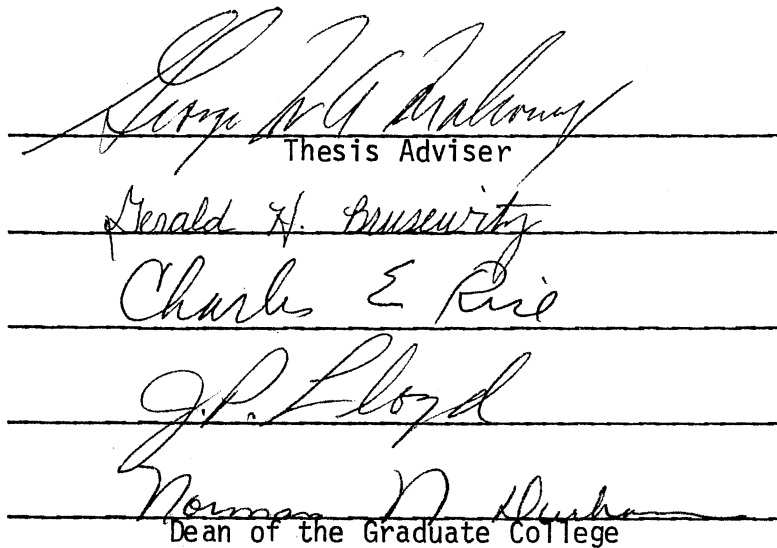 George W A Mahoney
Thesis Adviser
Gerald H. Brusewitz
Charles E Rice
J.P. Lloyd
Norman N Durham
Dean of the Graduate College